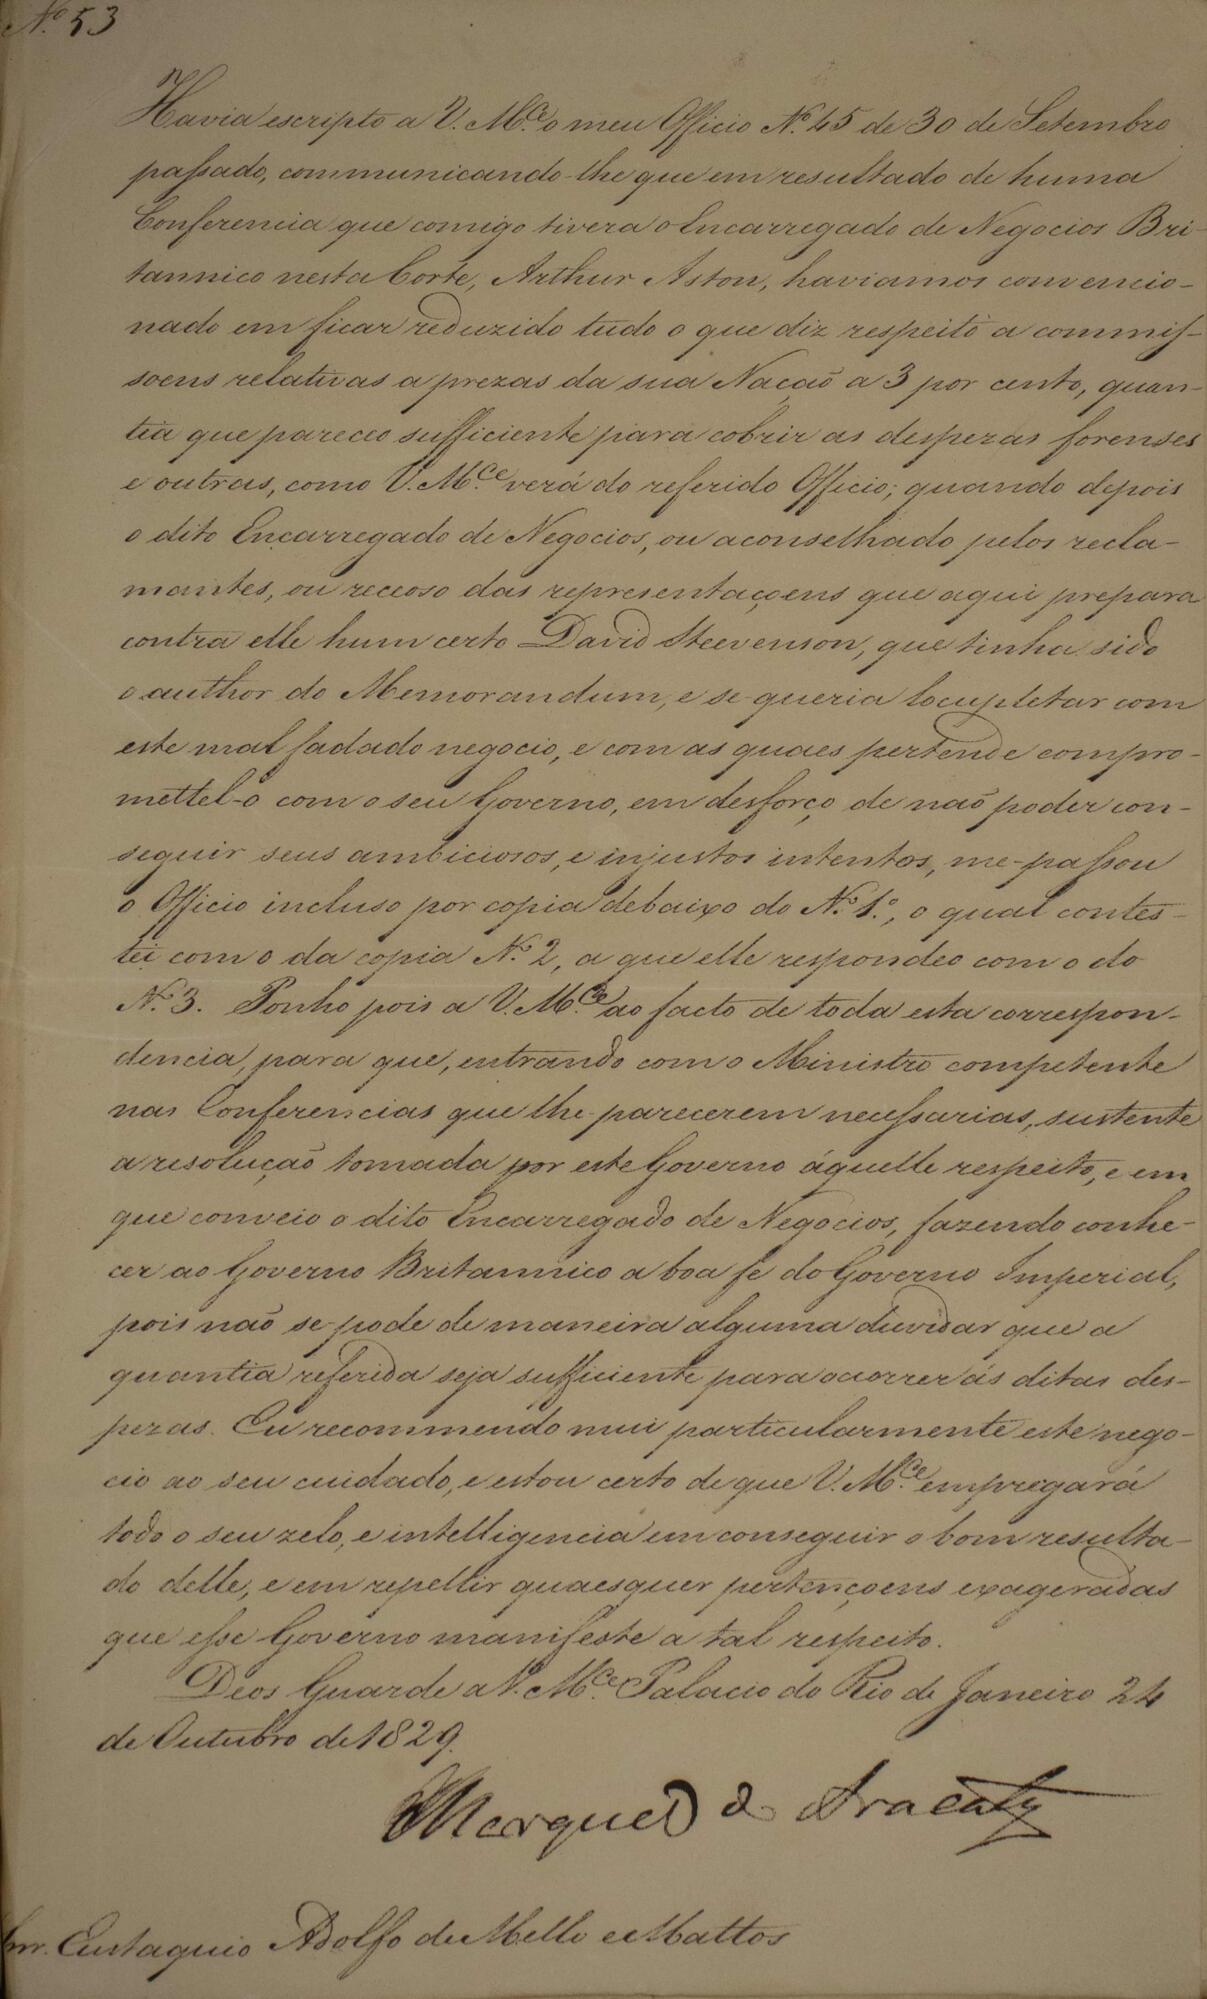 Nº 53
Havia escripto a V. M.ce o meu Officio Nº 45 de 30 de Setembro
passado, communicando-lhe que em resultado de huma
Conferencia que comigo tivera o Encarregado de Negocios Bri-
tannico nesta Corte, Arthur Aston, haviamos convencio-
nado em ficar reduzido tudo o que diz respeito a commis-
soens relativas a prezas da sua Nação a 3 por cento, quan-
tia que pareceo sufficiente para cobrir as despezas forenses
e outras, como V. M.ce verá do referido Officio; quando depois
o dito Encarregado de Negocios, ou aconselhado pelos recla-
mantes, ou receoso das representaçoens que aqui prepara
contra elle hum certo David Steevenson, que tinha sido
o author do Memorandum, e se queria locupletar com
este mal fadado negocio, e com as quaes pertende compro-
mettel-o com o seu Governo, em desforço de não poder con-
seguir seus ambiciosos, e injustos intentos, me-passou
o Officio incluso por copia debaixo do Nº 1º, o qual contes-
tei com o da copia Nº 2, a que elle respondeo com o do
Nº 3. Ponho pois a V. M.ce ao facto de toda esta correspon-
dencia, para que, entrando com o Ministro competente
nas Conferencias que lhe parecerem necessarias, sustente
a resolução tomada por este Governo áquelle respeito, e em
que conveio o dito Encarregado de Negocios, fazendo conhe-
cer ao Governo Britannico a boa fé do Governo Imperial,
pois não se-pode de maneira alguma duvidar que a
quantia referida seja sufficiente para ocorrer ás ditas des-
pezas. Eu recommendo mui particularmente este nego-
cio ao seu cuidado, e estou certo de que V. M.ce empregará
todo o seu zelo, e intelligencia em conseguir o bom resulta-
do delle, e em repellir quaesquer pertençoens exageradas
que esse Governo manifeste a tal respeito.
Deos Guarde a V. M.ce Palacio do Rio de Janeiro 24
de Outubro de 1829.
Marques de Aracaty
Snr. Eustaquio Adolfo de Mello e Mattos